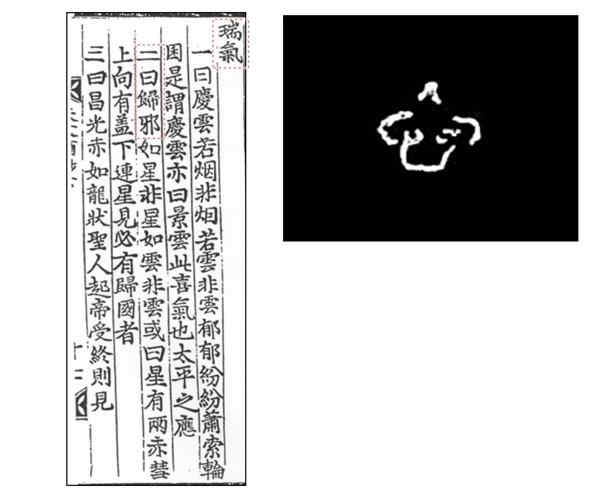 瑞氣
一曰慶雲若烟非烟若雲非雲郁郁紛紛蕭索輪
囷是謂慶雲亦曰景雲此喜氣也太平之應
二曰歸邪如星非星如雲非雲或曰星有兩赤彗
上向有盖下連星見必有歸國者
三曰昌光赤如龍狀聖人起帝受終則見
十二